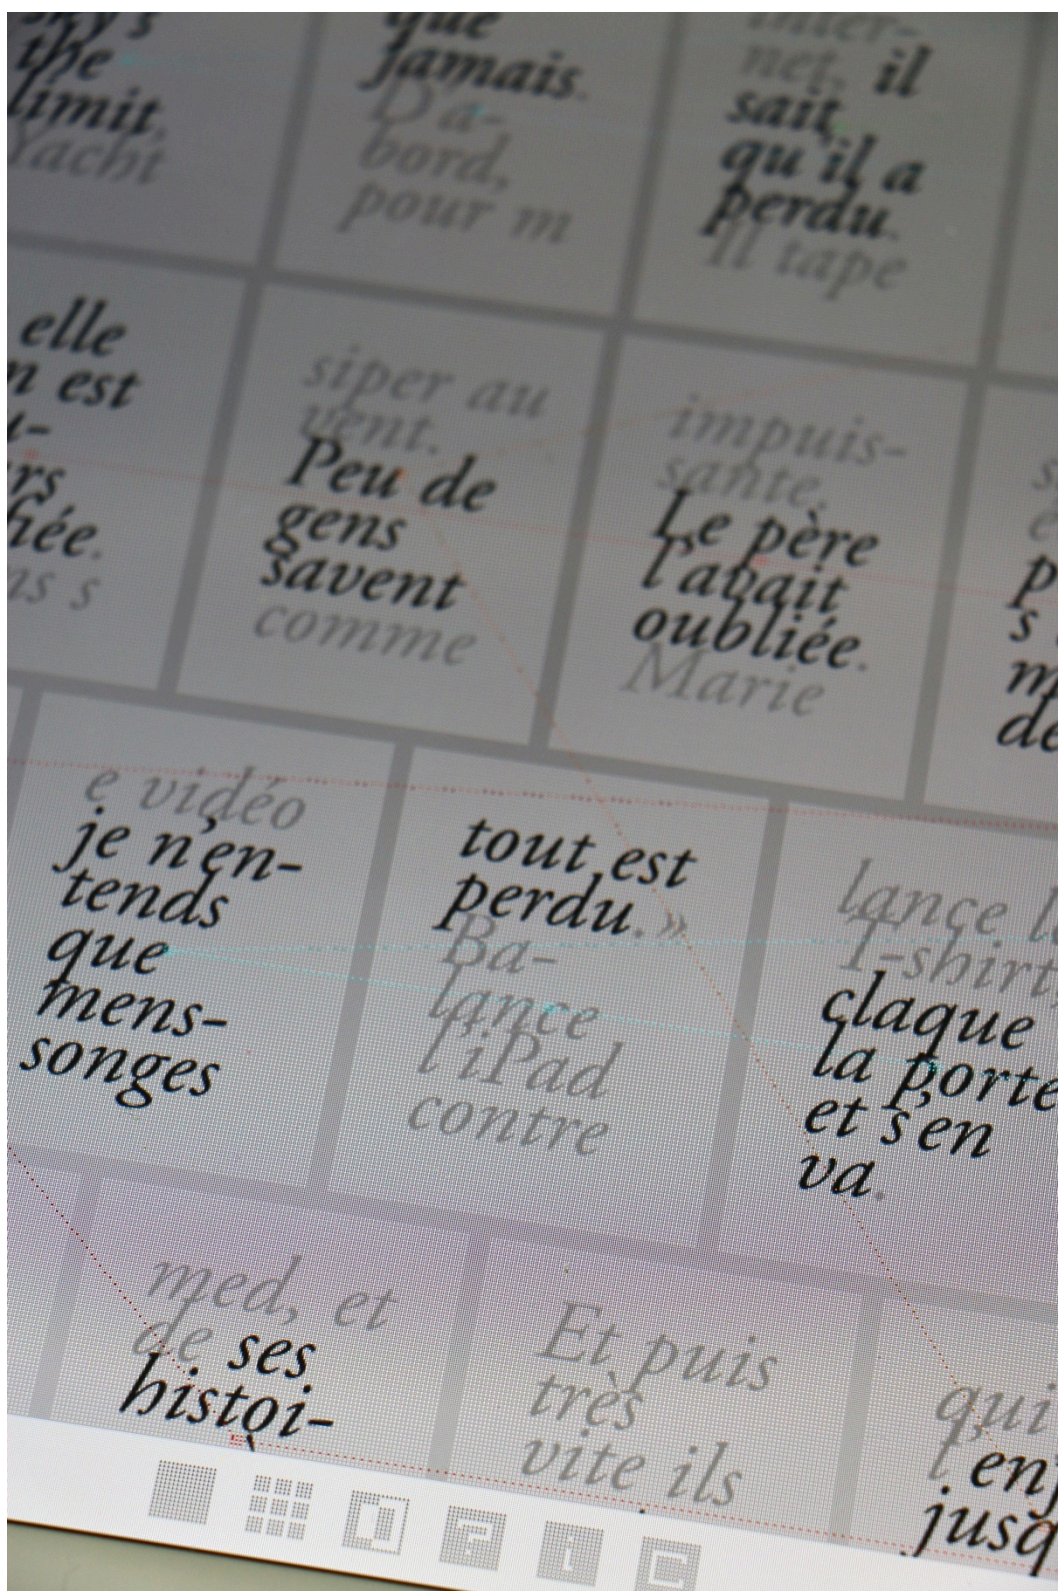 sky's
the
limit,
Yacht
que
jamais.
D'a-
bord,
pour m
Inter-
net, il
sait,
qu'il a
perdu.
Il tape
elle
n est
u-
rs
iée.
ns s
siper au
vent.
Peu de
gens
savent
comme
impuis-
sante.
Le père
l'avait
oubliée.
Marie
s
e
p
s
m
de
e vidéo
je n'en-
tends
que
mens-
songes
tout est
perdu.»
Ba-
lance
l'iPad
contre
lance l
T-shirt
claque
la porte
et s'en
va.
med, et
de ses
histoi-
Et puis
très
vite ils
qui
l'en
jusq